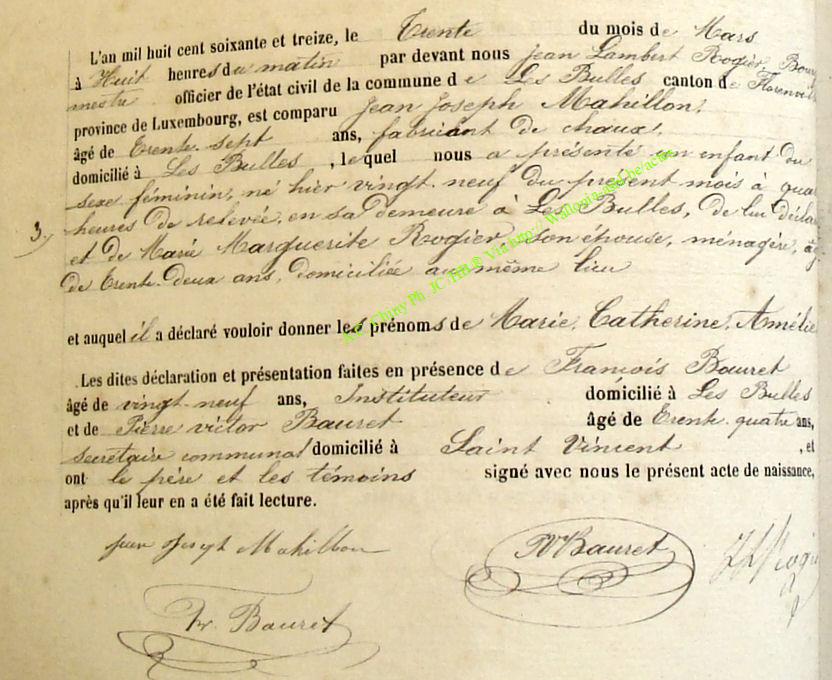 L'an mil huit cent soixante et treize, le Trente du mois de Mars
à Huit heures du matin par devant nous Jean Lambert Rogier, Bourg
mestre officier de l'état civil de la commune de Les Bulles canton de Florenville
province de Luxembourg, est comparu Jean Joseph Mahillon,
âgé de Trente-sept ans, fabricant de chaux,
domicilié à Les Bulles, lequel nous a présenté un enfant du
sexe féminin, né hier vingt-neuf du présent mois à quatre
3. heures de relevée, en sa demeure à Les Bulles, de lui déclarant
et de Marie Marguerite Rogier, son épouse, ménagère, âg
de Trente-deux ans, domiciliée au même lieu
et auquel il a déclaré vouloir donner les prénoms de Marie, Catherine, Amélie
Les dites déclaration et présentation faites en présence de François Bauret
âgé de vingt-neuf ans, Instituteur domicilié à Les Bulles
et de Pierre victor Bauret âgé de Trente-quatre ans,
secrétaire communal domicilié à Saint Vincent, et
ont le père et les témoins signé avec nous le présent acte de naissance,
après qu'il leur en a été fait lecture.
jean Joseph Mahillon
PVBauret
JLRogier
Fr. Bauret